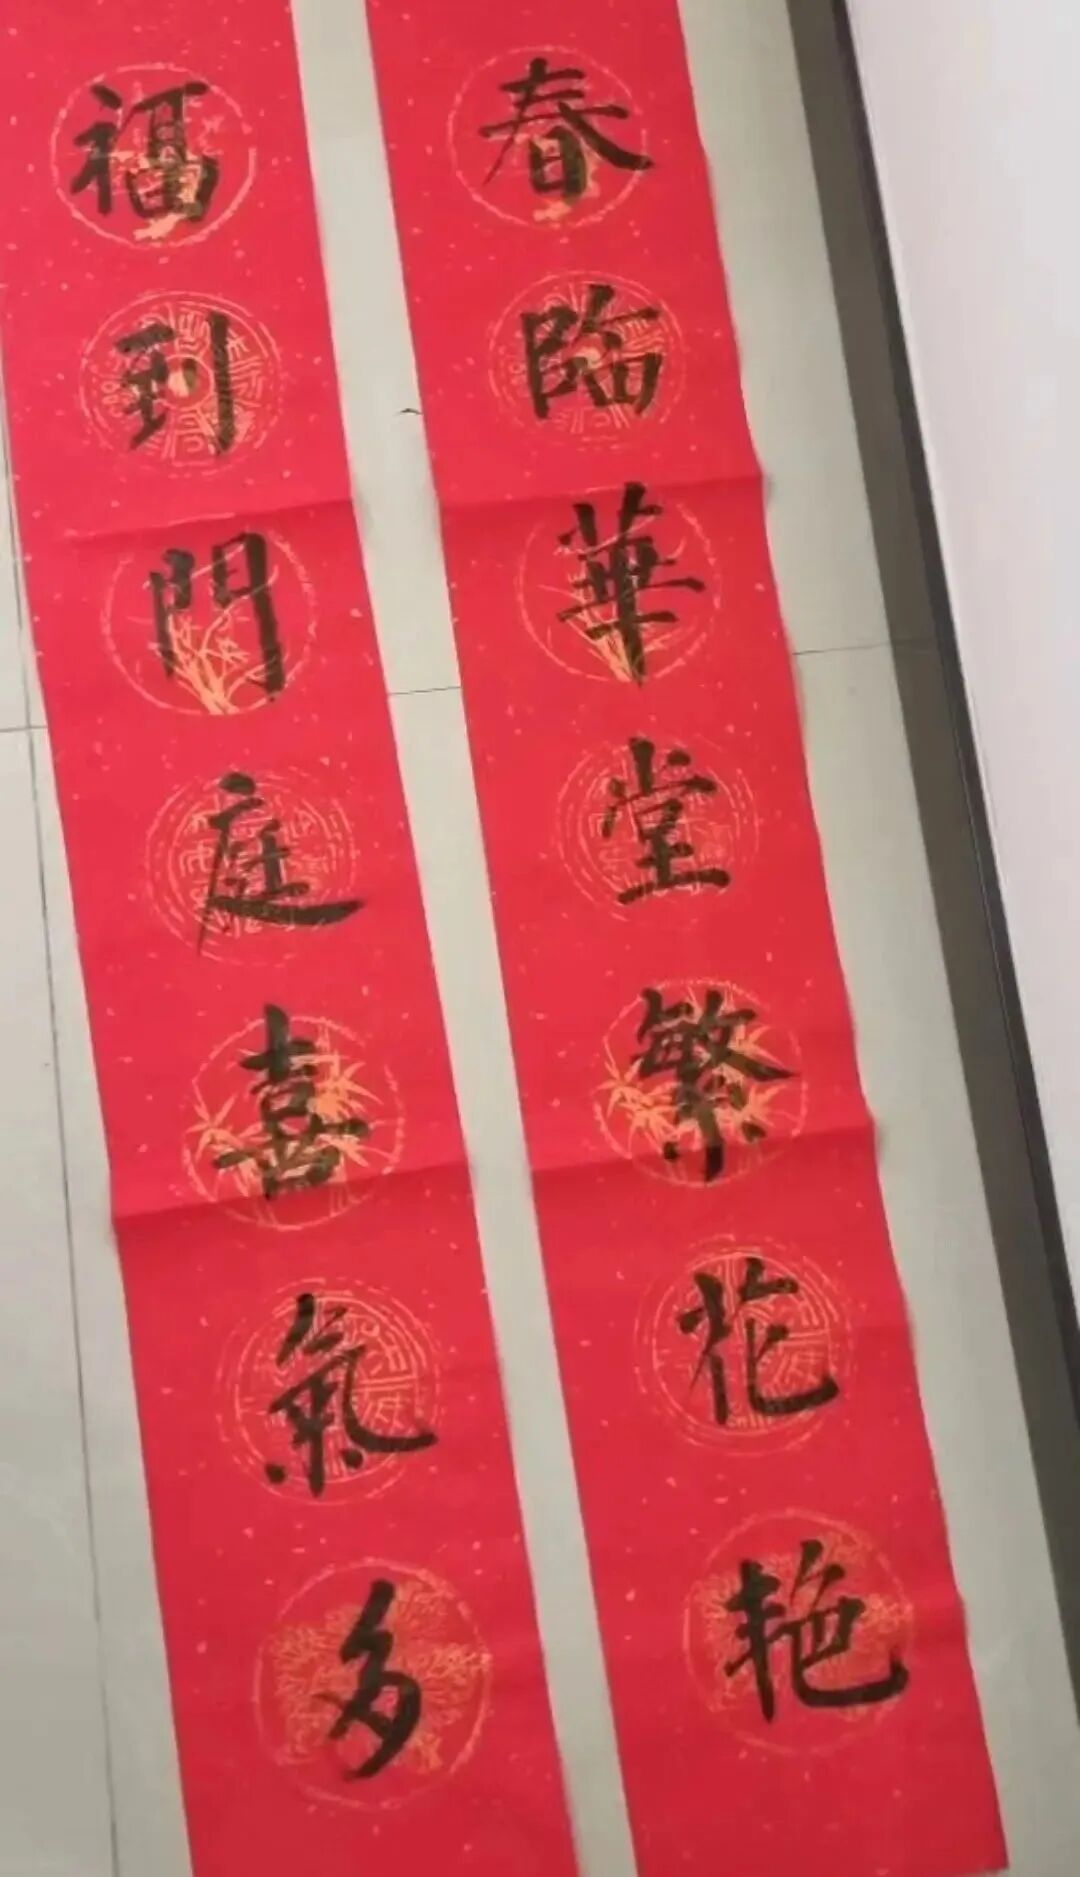 春臨華堂繁花艳
福到門庭喜氣多